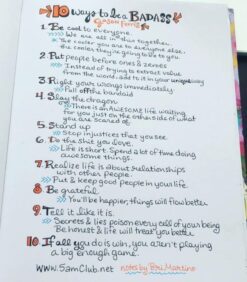 10 Ways to be a BADASS
Jason Ferris
1. Be cool to everyone
We are all in this together
The cooler you are to everyone else,
the cooler they're going to be to you
2. Put people before ones & zeroes
Instead of trying to extract value
from the world add to it in your unique way
3. Right your wrongs immediately
Pull off the bandaid
4. Slay the dragon
There is an AWESOME life waiting
for you just on the other side of what
you are scared of
5. Stand up
Stop injustices that you see
6. Do the shit you love.
Life is short. Spend a lot of time doing
awesome things.
7. Realize life is about relationships
with other people.
Put & keep good people in your life.
8. Be grateful.
You'll be happier, things will flow better
9. Tell it like it is.
Secrets & lies poison every cell of your being
Be honest & life will treat you better
10. If all you do is win, you aren't playing
a big enough game.
www.5amClub.net
notes by Tori Martino